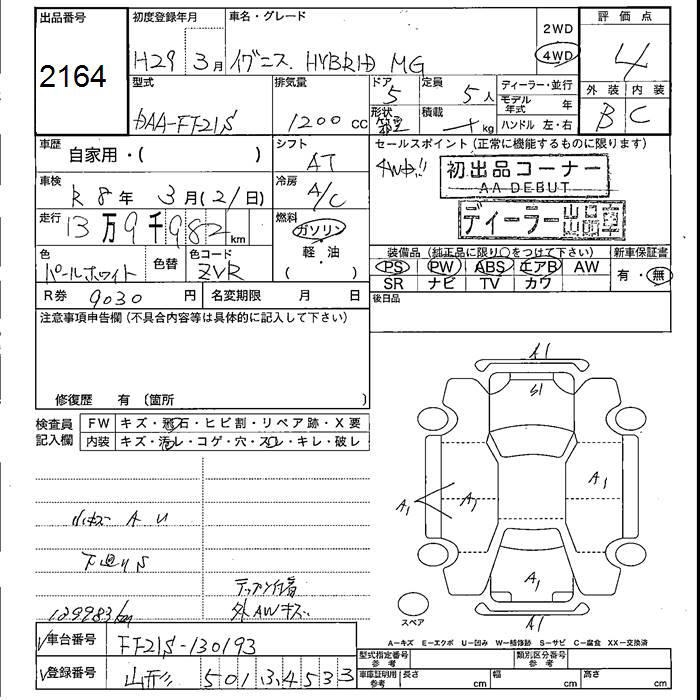 出品番号 初度登録年月 車名・グレード 2WD 評価点
2164 H29 3月 イグニス HYBRID MG 4WD 4
型式 排気量 ドア 定員 ディーラー・並行 外装 内装
DAA-FF21S 1200cc 5 5人 モデル年式 年 B C
形状 箱型 積載 kg ハンドル 左・右
車歴 自家用・( ) シフト AT セールスポイント(正常に機能するものに限ります)
4WD!! 初出品コーナー
AA DEBUT
車検 R8年 3月(21日) 冷房 A/C
ディーラー出品車
走行 13万9千982km 燃料 ガソリン
軽・油
( )
色 パールホワイト 色替 色コード ZVR
装備品(純正品に限り○をつけて下さい) 新車保証書
PS PW ABS エアB AW 有・無
SR ナビ TV カワ
R券 9030円 名変期限 月 日 後日品
注意事項申告欄(不具合内容等は具体的に記入して下さい)
修復歴 有 〔箇所 〕
検査員記入欄 FW キズ・飛石・ヒビ割・リペア跡・X要
内装 キズ・汚レ・コゲ・穴・スレ・キレ・破レ
A1
S1
A1 A1 A1
A1
A1
小キズ A U
下廻りS
139983km
外AWキズ
スペア
A—キズ E—エクボ U—凹み W—補修跡 S—サビ C—腐食 XX—交換済
車台番号 FF21S-130193 型式指定番号 参考 類別区分番号 参考
登録番号 山形 501 3 4533 車庫証明用 参考 長さ cm 幅 cm 高さ cm